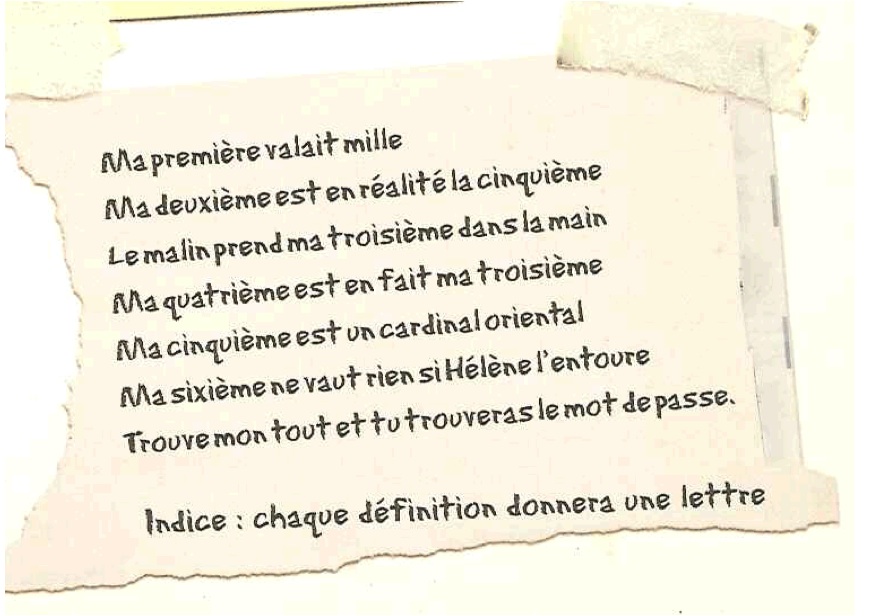 Ma première valait mille
Ma deuxième est en réalité la cinquième
Le malin prend ma troisième dans la main
Ma quatrième est en fait ma troisième
Ma cinquième est un cardinal oriental
Ma sixième ne vaut rien si Hélène l'entoure
Trouve mon tout et tu trouveras le mot de passe.
Indice : chaque définition donnera une lettre